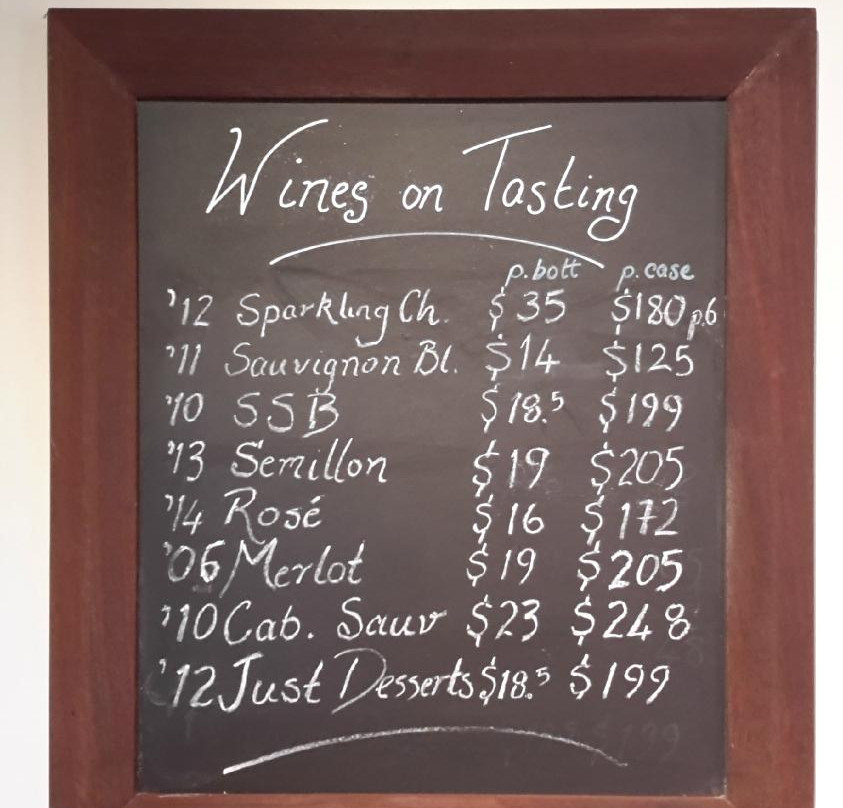 Wines on Tasting
p.bott p.case
'12 Sparkling Ch. $35 $180 p.6
'11 Sauvignon Bl. $14 $125
'10 SSB $18.5 $199
'13 Semillon $19 $205
'14 Rosé $16 $172
'06 Merlot $19 $205
'10 Cab. Sauv $23 $248
'12 Just Desserts $18.5 $199